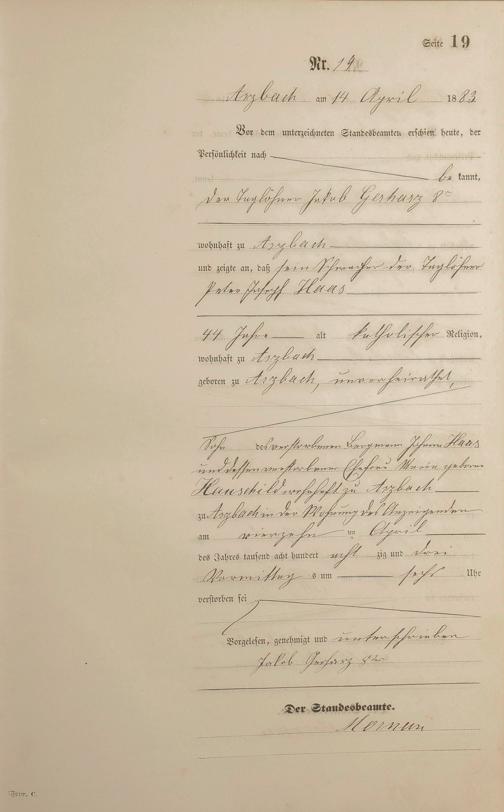 Seite 19
Nr. 19.
Arzbach am 14 April 1883
Vor dem unterzeichneten Standesbeamten erschien heute, der
Persönlichkeit nach
be kannt,
der Taglöhner Jakob Gerharz 8r
wohnhaft zu Arzbach
und zeigte an, daß sein Schwager der Taglöhner
Peter Joseph Haas
44 Jahre alt katholischer Religion,
wohnhaft zu Arzbach
geboren zu Arzbach, unverheirathet,
Sohn des verstorbenen Bergmann Johann Haas
und dessen verstorbenen Ehefrau Maria geborne
Hauschild wohnhaft zu Arzbach
zu Arzbach in der Wohnung des Anzeigenden
am vierzehn ten April
des Jahres tausend acht hundert acht zig und drei
Vormittag s um sechs Uhr
verstorben sei
Vorgelesen, genehmigt und unterschrieben
Jakob Gerharz 8ter
Der Standesbeamte.
Form. C.